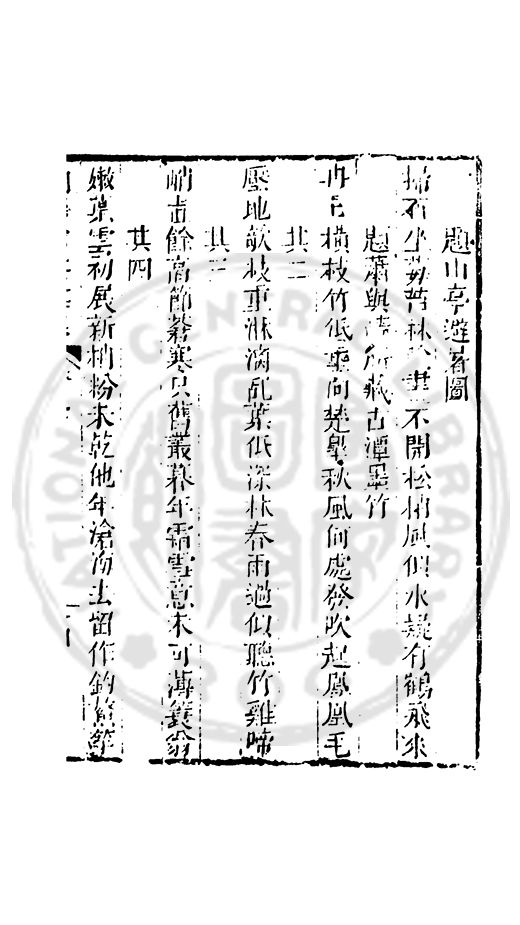 題山亭遊䔥圖
掃石坐莓苔林 書不開松梢風似水疑有鶴飛來
題蕭與 所藏古潭墨竹
冉冉橫枝竹低垂向楚皋秋風何處發吹起鳳凰毛
其二
壓地欹枝重淋漓亂葉低深林春雨過似聽竹雞啼
其三
餘高節蓁寒只舊叢暮年霜雪意未可 簑翁
其四
嫩葉雲初展新梢粉未乾他年滄海去留作釣 竿